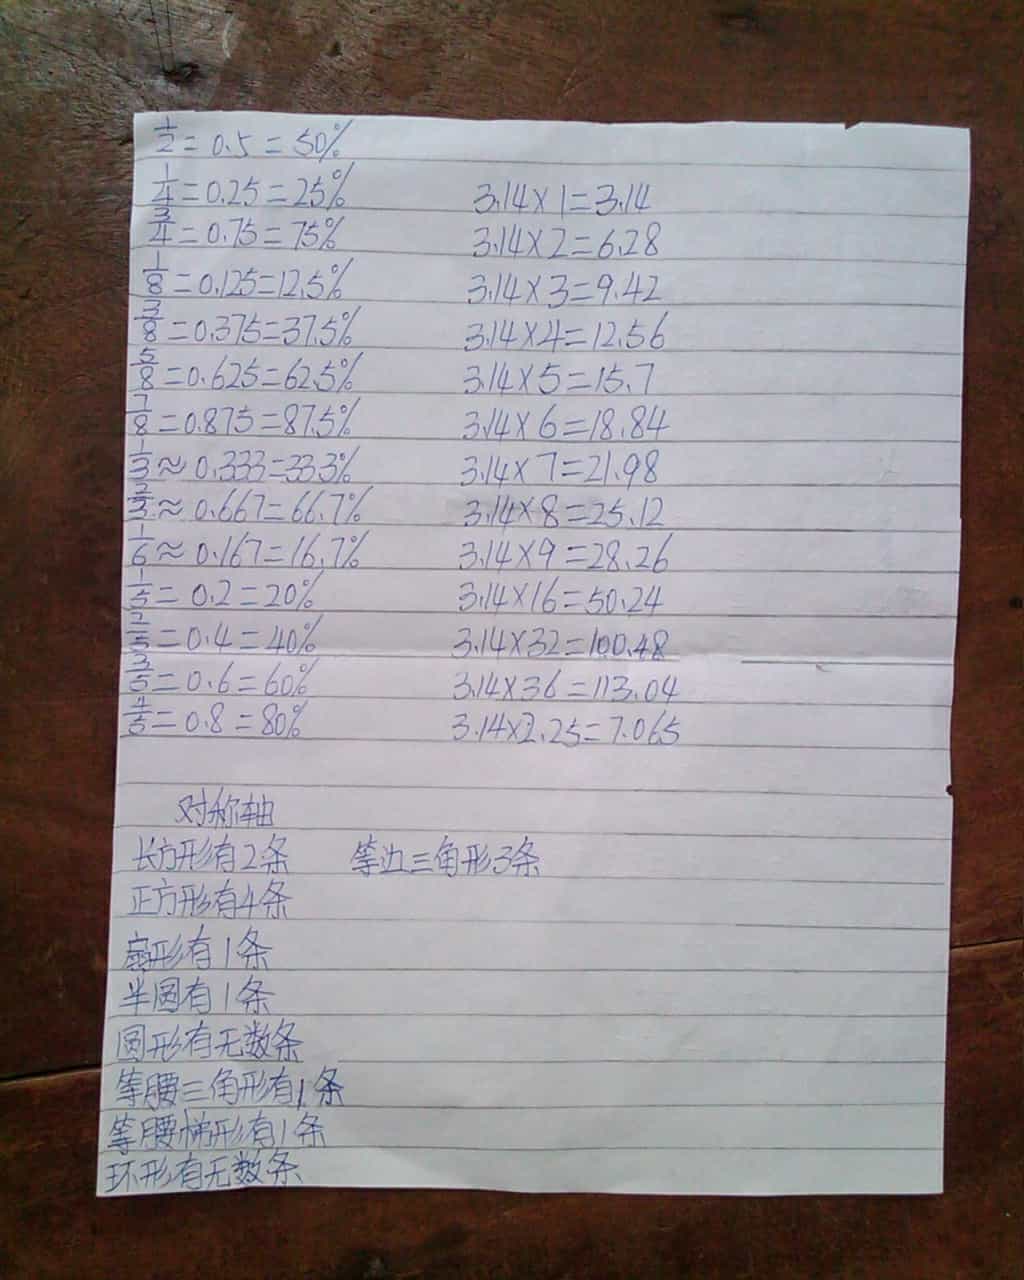 1/2 = 0.5 = 50%
1/4 = 0.25 = 25% 3.14×1=3.14
3/4 = 0.75 = 75% 3.14×2=6.28
1/8 = 0.125=12.5% 3.14×3=9.42
3/8 = 0.375=37.5% 3.14×4=12.56
5/8 = 0.625=62.5% 3.14×5=15.7
7/8 = 0.875=87.5% 3.14×6=18.84
1/3 ≈ 0.333=33.3% 3.14×7=21.98
2/3 ≈ 0.667=66.7% 3.14×8=25.12
1/6 ≈ 0.167=16.7% 3.14×9=28.26
1/5 = 0.2=20% 3.14×16=50.24
2/5 = 0.4=40% 3.14×32=100.48
3/5 = 0.6=60% 3.14×36=113.04
4/5 = 0.8=80% 3.14×2.25=7.065
对称轴
长方形有2条 等边三角形3条
正方形有4条
扇形有1条
半圆有1条
圆形有无数条
等腰三角形有1条
等腰梯形有1条
环形有无数条